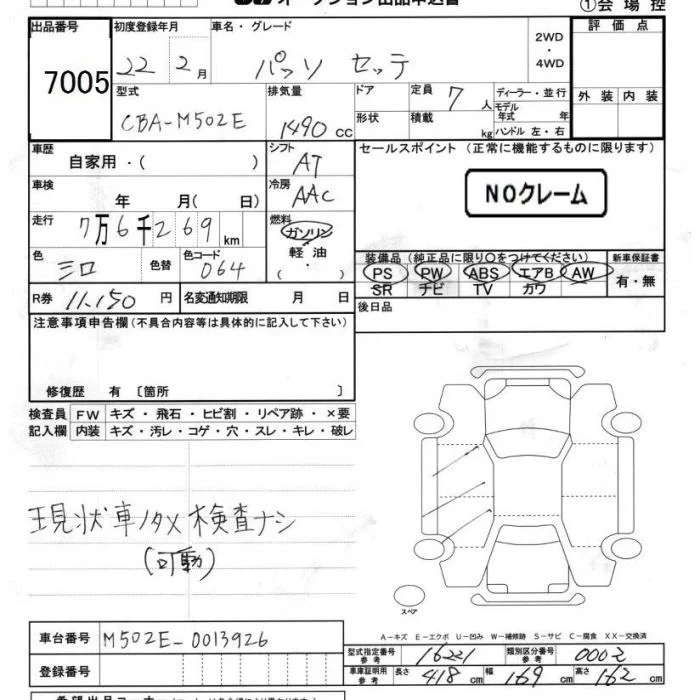 オークション出品申込書
①会場控
出品番号 初度登録年月 車名・グレード 評価点
7005 22 2月 パッソ セッテ 2WD・4WD
型式 排気量 ドア 定員 7人 ディーラー・並行 外装 内装
CBA-M502E 1490cc 形状 積載 kg モデル年式 年 ハンドル 左・右
車歴 シフト セールスポイント(正常に機能するものに限ります)
自家用・( ) AT
車検 年 月(日) 冷房 AAC NOクレーム
走行 7万6千269km 燃料 ガソリン 軽油 ( ・ )
色 色替 色コード 装備品(純正品に限り○をつけてください) 新車保証書
三口 064 PS PW ABS エアB AW 有・無
SR ナビ TV カワ
R券 11,150円 名変通知期限 月 日 後日品
注意事項申告欄(不具合内容等は具体的に記入して下さい)
修復歴 有 〔箇所 〕
検査員 FW キズ・飛石・ヒビ割・リペア跡・×要
記入欄 内装 キズ・汚レ・コゲ・穴・スレ・キレ・破レ
現状車ノタメ検査ナシ
(可動)
スペア
A-キズ E-エクボ U-凹み W-補修跡 S-サビ C-腐食 XX-交換済
車台番号 M502E-0013926 型式指定番号 参考 16221 類別区分番号 参考 0002
登録番号 車庫証明用 参考 長さ 418cm 幅 169cm 高さ 162cm